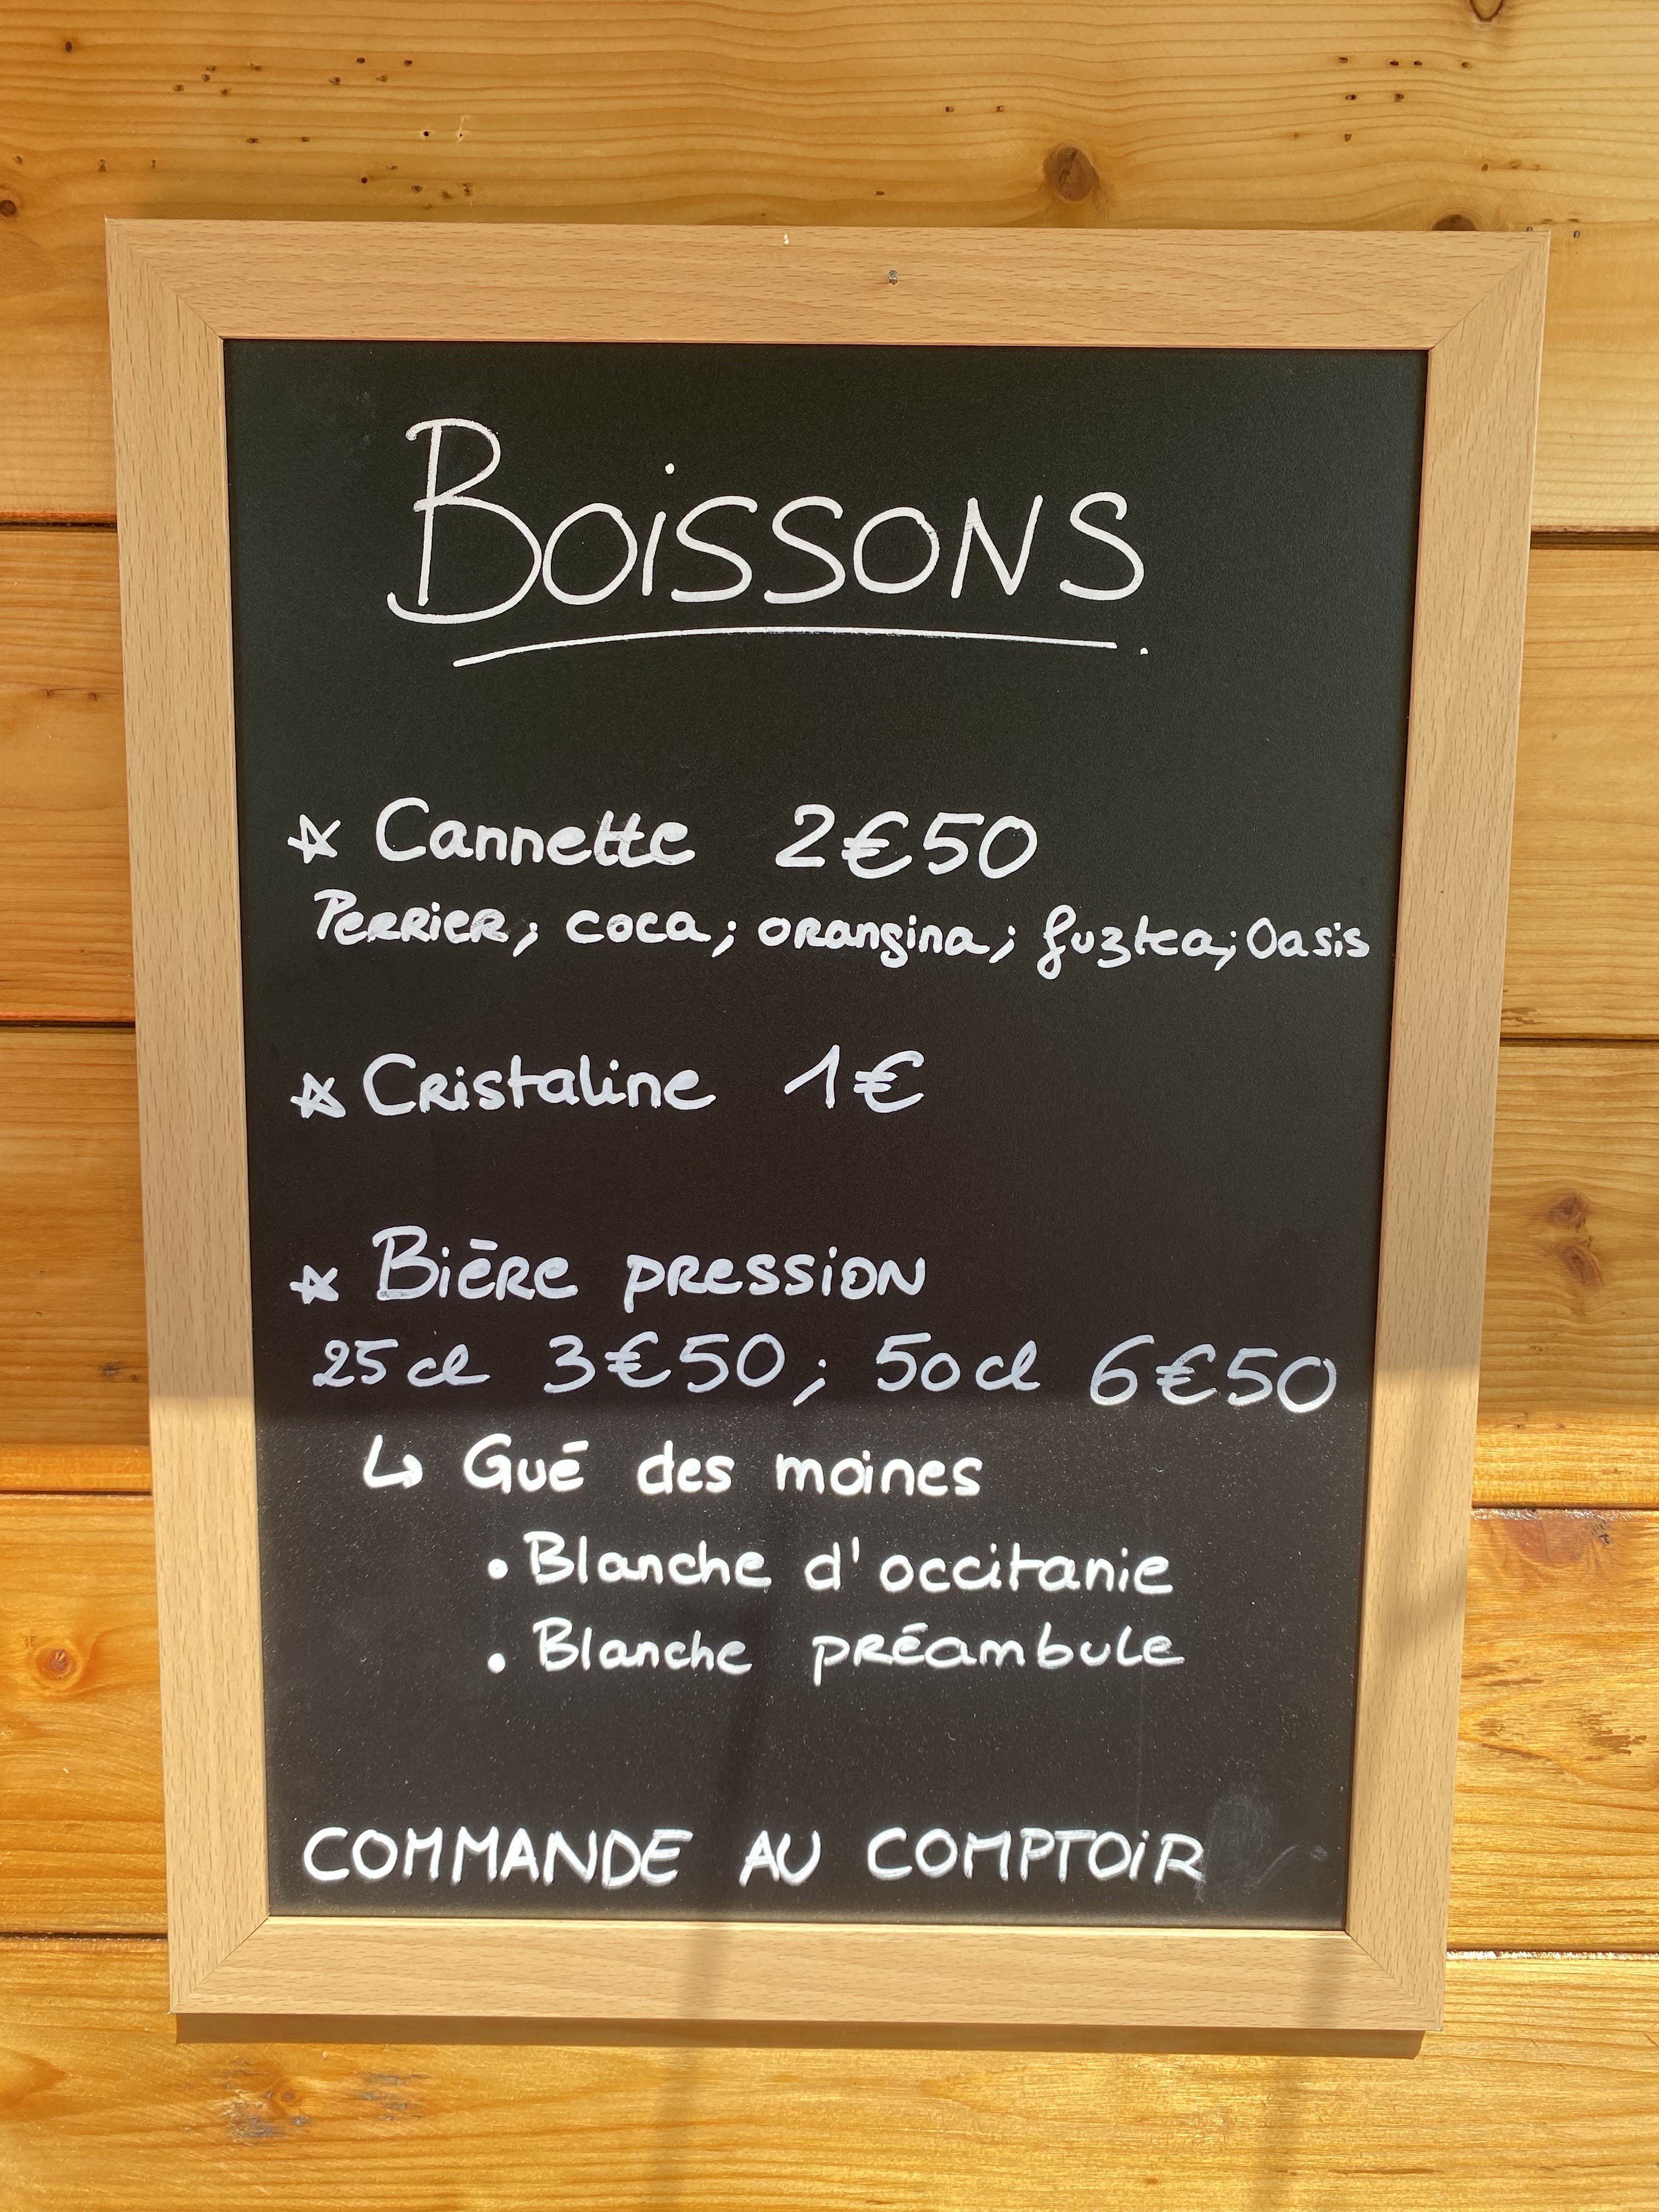 BOISSONS
☆ Cannette 2€50
Perrier; coca; orangina; fuztea; Oasis
☆ Cristaline 1€
☆ Bière pression
25 cl 3€50; 50 cl 6€50
↳ Gué des moines
• Blanche d'occitanie
• Blanche préambule
COMMANDE AU COMPTOIR